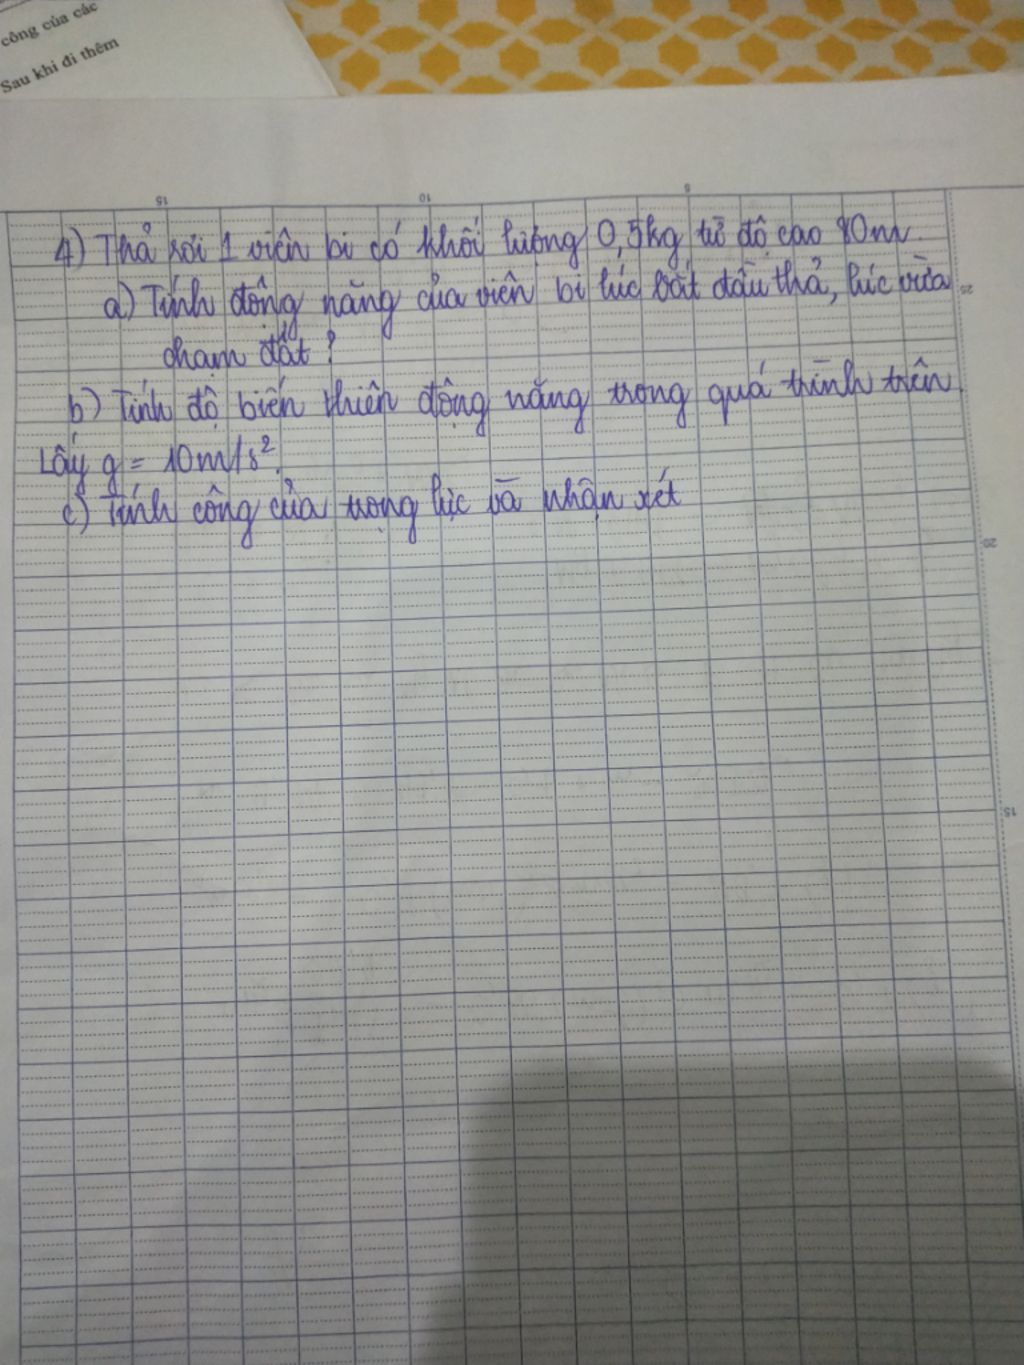 công của các
Sau khi đi thêm
15
10
5
4) Thả rơi 1 viên bi có khối lượng 0,5kg từ độ cao 80m.
a) Tính động năng của viên bi lúc bắt đầu thả, lúc vừa
25
chạm đất?
b) Tính độ biến thiên động năng trong quá trình trên.
Lấy g = 10m/s².
c) Tính công của trọng lực và nhận xét
20
15